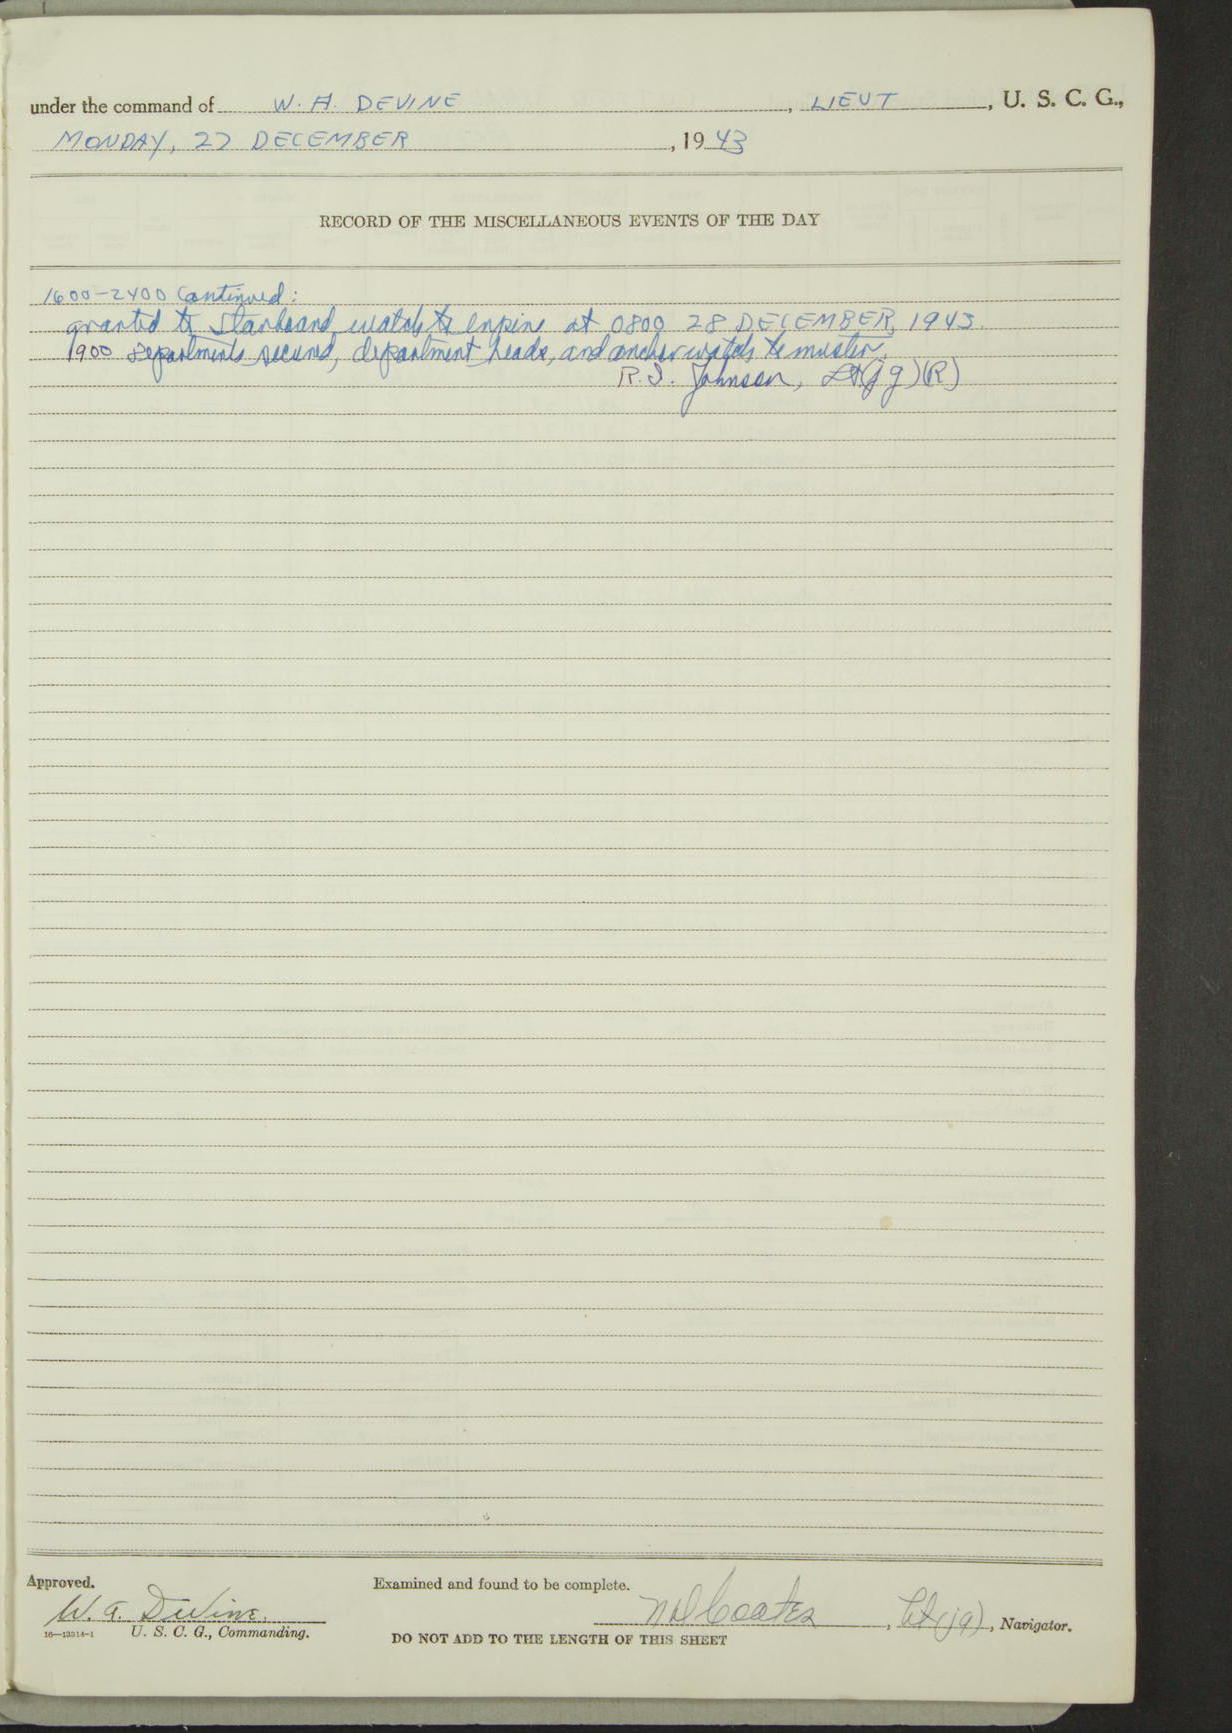 under the command of W. A. DEVINE, LIEUT, U. S. C. G.,
MONDAY, 27 DECEMBER, 1943
RECORD OF THE MISCELLANEOUS EVENTS OF THE DAY
1600-2400 Continued:
granted to Starboard watch to expire at 0800 28 DECEMBER, 1943.
1900 departments secured, department heads, and anchor watch to muster.
R. S. Johnson, Lt(jg)(R)
Approved.
Examined and found to be complete.
W. A. Devine.
Coates, Lt(jg), Navigator.
16—13314-1 U. S. C. G., Commanding.
DO NOT ADD TO THE LENGTH OF THIS SHEET